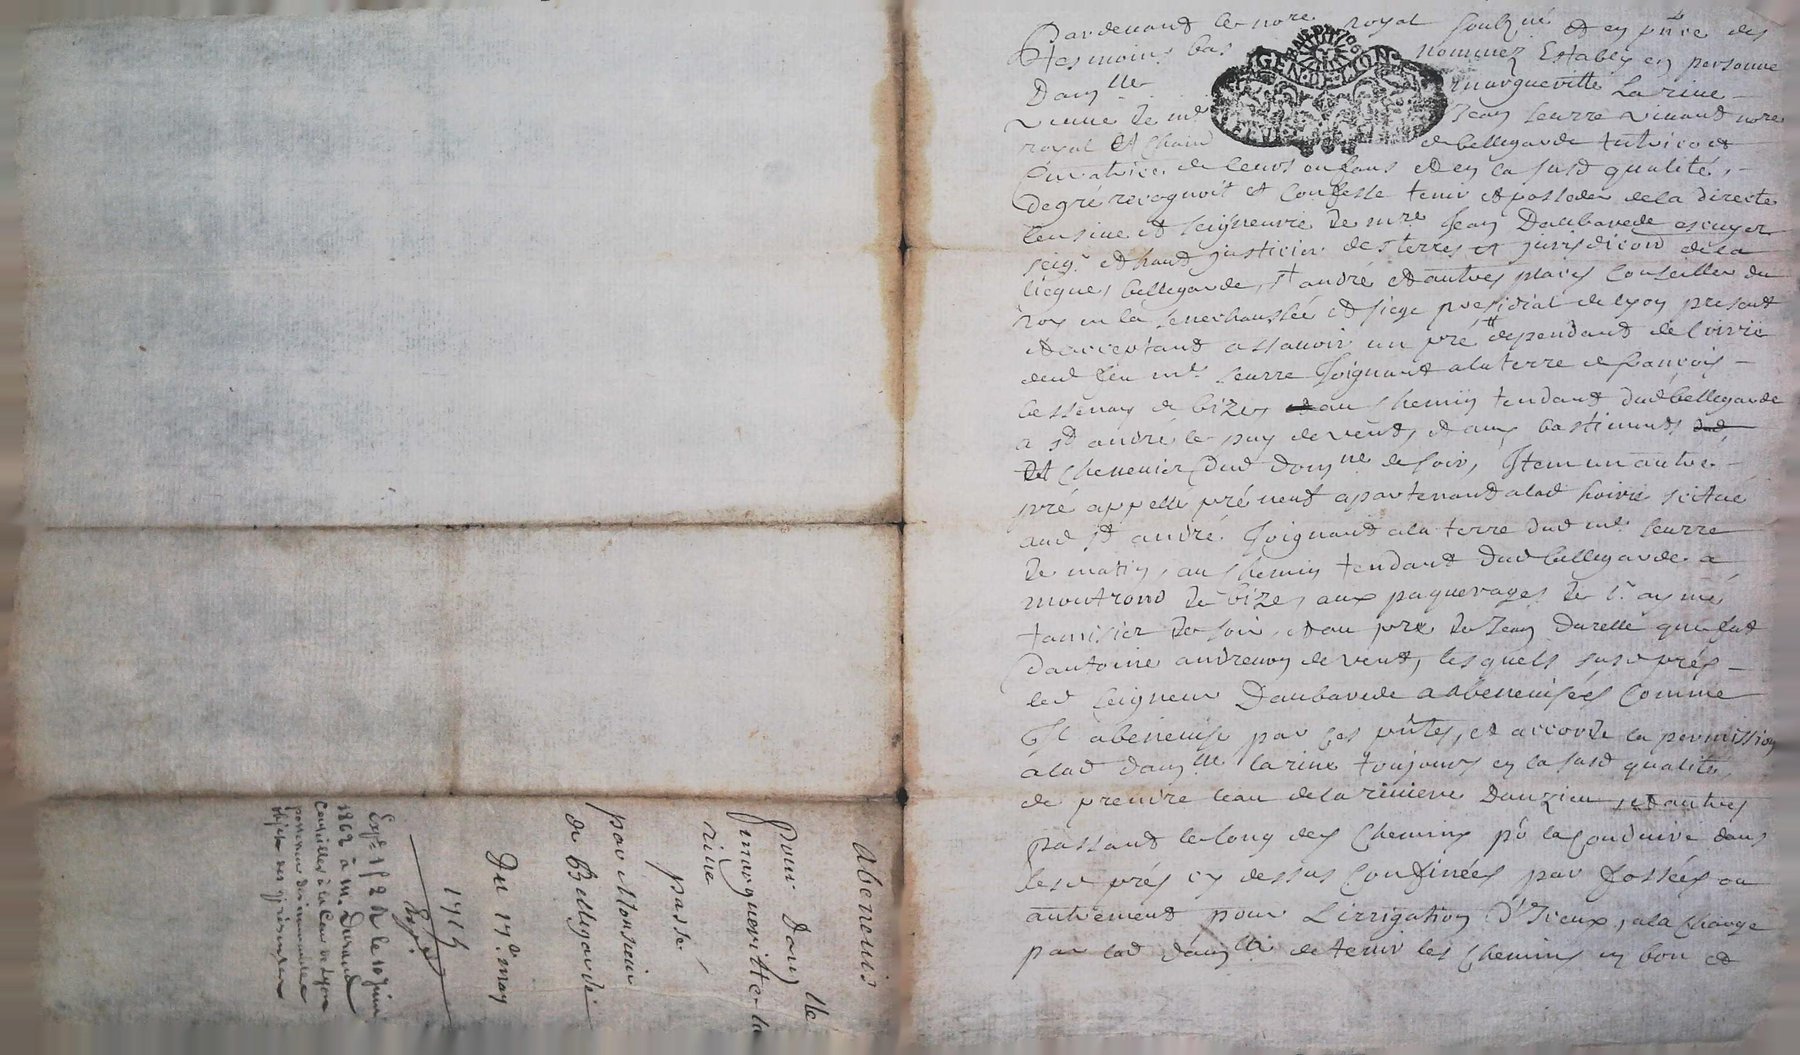 Pardevant le no.re royal soubz.né et en p.nce des
tesmoins bas nommez Establye en personne
GEN·DE·LYON
Dam.lle margueritte Larive
veuve de m.e Jean leurre vivant no.re
royal et de bellegarde tutrice et
Curatrice de leurs enfans et en la susd qualité,
de gré recognoit et Confesse tenir et posseder de la directe
Censive et seigneurie de m.re Jean Daubarede escuyer
seig.r et haud justicier des terres et jurisdicion de la
liegue, bellegarde, s.t andré et autres places Conseiller du
Roy en la senechaussée et siege presidial de lyon present
et acceptant assavoir un pré dependant de l'oirie
dud feu m.e leurre Joignant a la terre de françois
bessenay de bize, au chemin tendant dud bellegarde
a s.t andré le puy de vent, et aux bastiments
et Chenevier dud dom.ne de soir, Item un autre
pré appellé pré neuf apartenant a lad hoirie scitué
aud s.t andré Joignant a la terre dud m.e leurre
de matin, au chemin tendant dud bellegarde a
montrond de bize, aux paquerages de s.r aymé
tamisier de soir, et au pré de Jean Durelle que fut
d'antoine andrevon de vent, lesquels susd prés
led seigneur Daubarede a abenevisées Comme
Il abenevise par ces p.ntes, et accorde la permission
a lad dam.lle larive toujours en la susd qualité,
de prendre l'eau de la riviere Danzieu, et autres
passant le long des Chemins p.r la Conduire dans
lesd prés cy dessus Confinées par fossées ou
autrement pour L'irrigation d'Iceux, a la charge
par lad dam.lle de tenir les Chemins en bon et
abenevis
Pour Dam.lle
margueritte la
rive
passé
par Monsieur
de Bellegarde
Du 17.e may
1715
le 10 Juin
1862 à M. Durand
Conseiller à la Cour de Lyon
possesseur des immeubles
objets des présentes